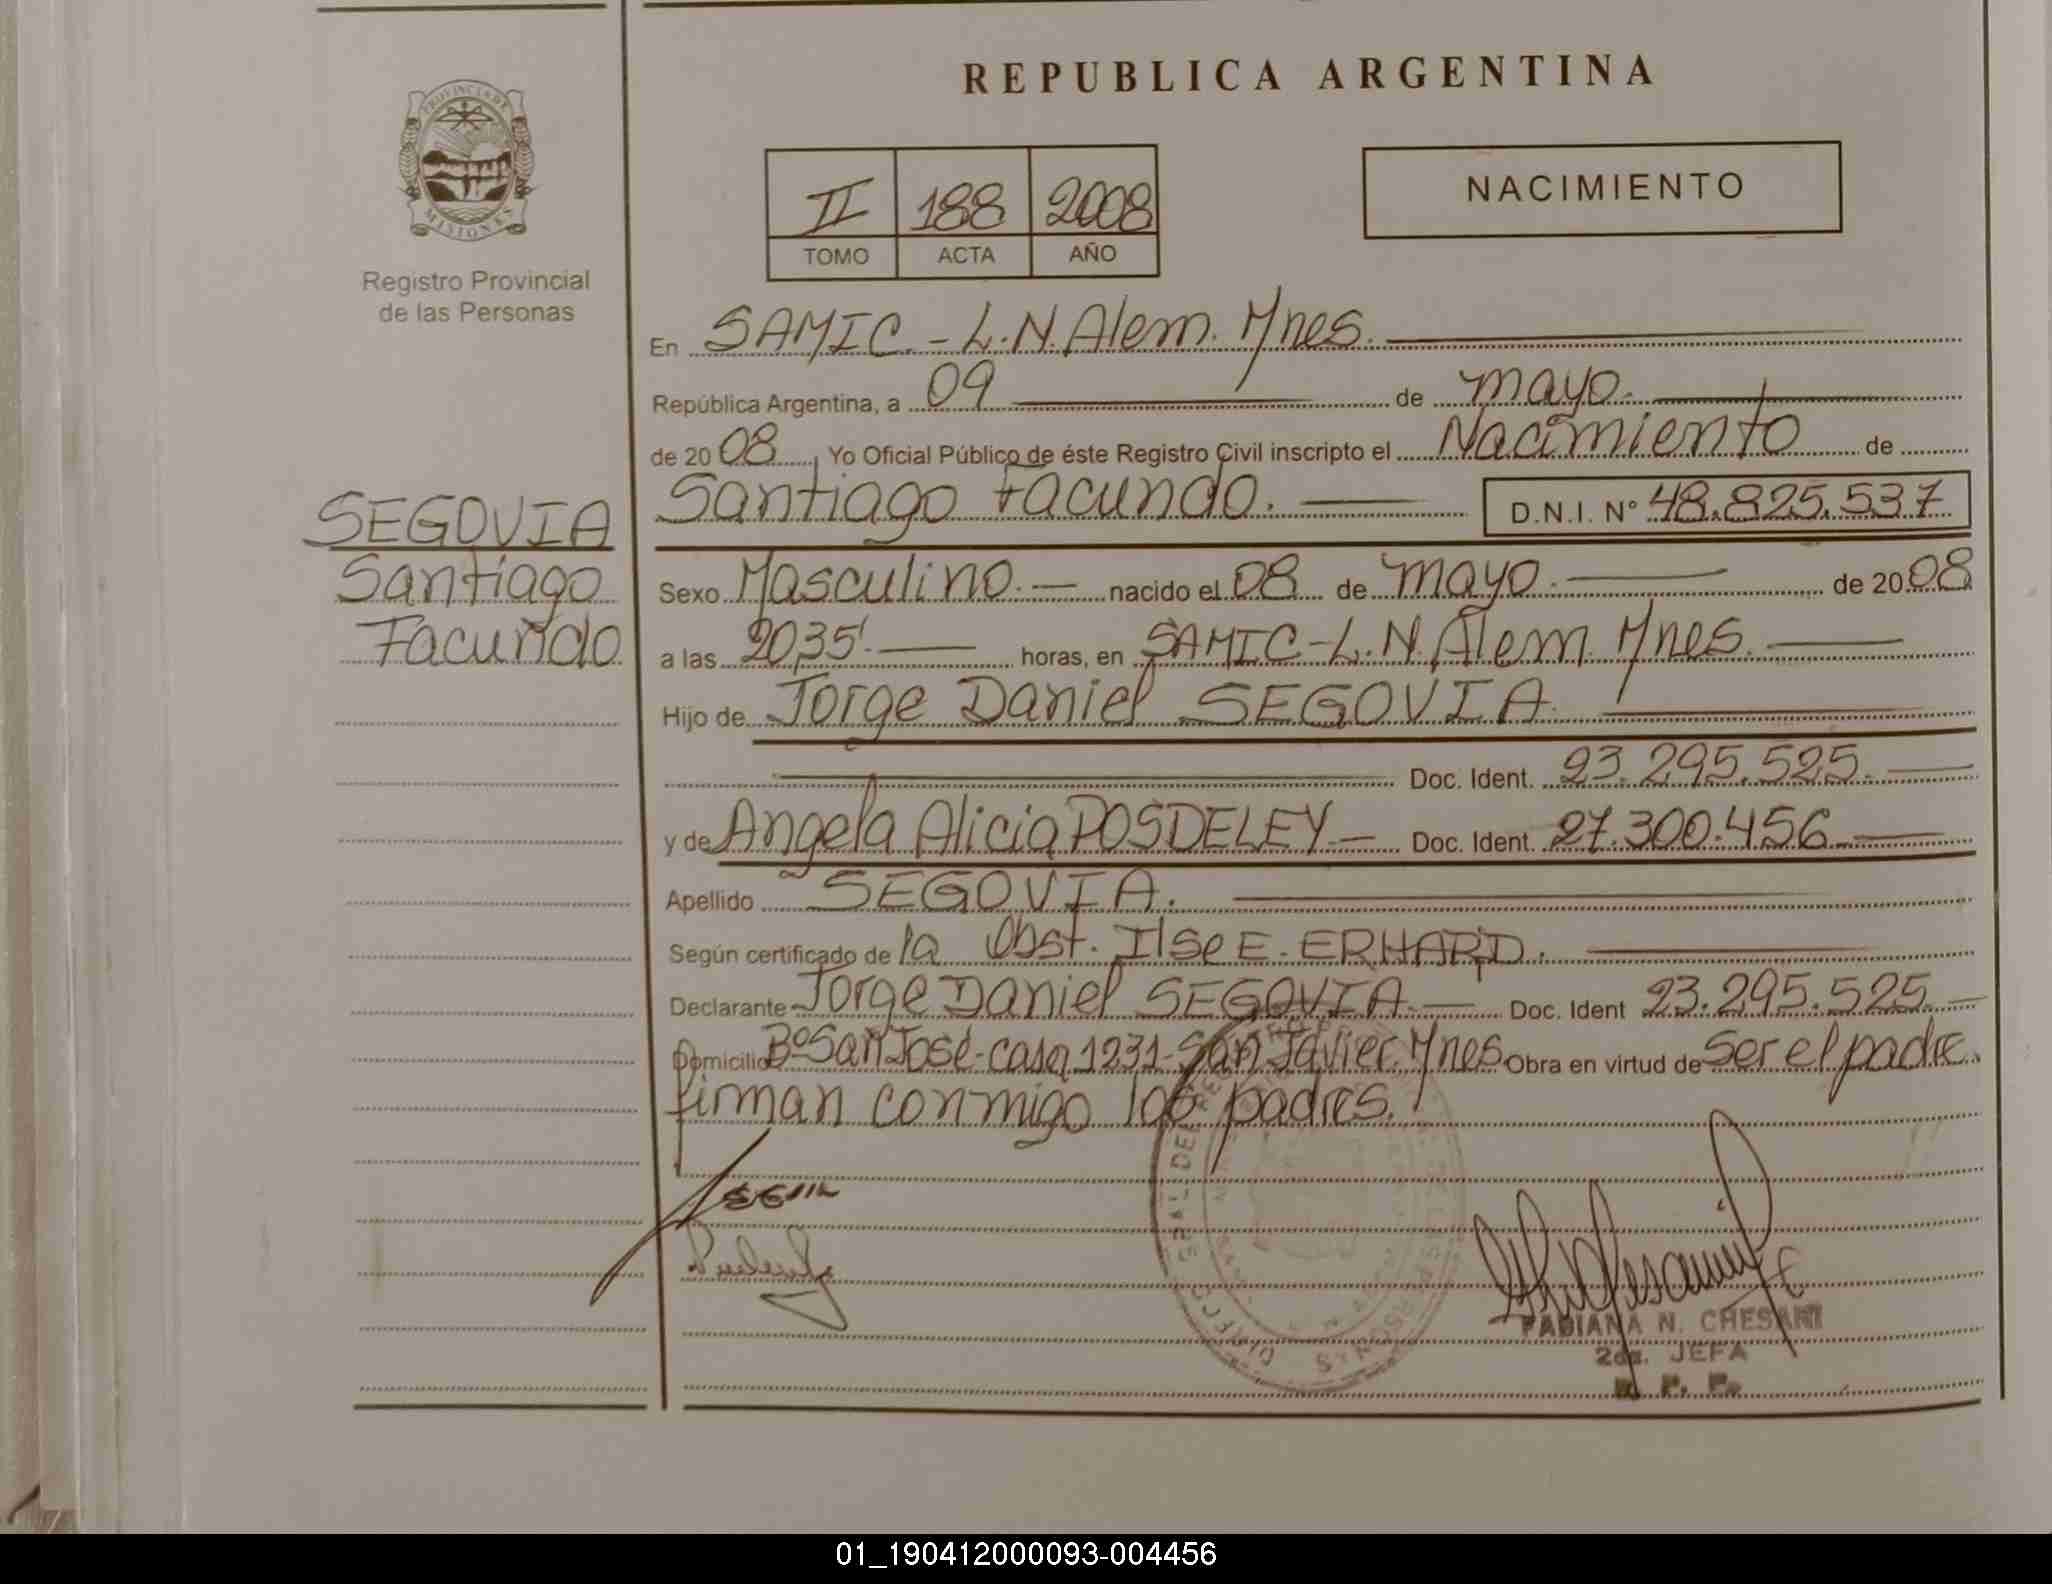 REPUBLICA ARGENTINA
PROVINCIA DE
MISIONES
Registro Provincial
de las Personas
II 188 2008
TOMO ACTA AÑO
NACIMIENTO
En SAMIC.-L.N.Alem. Mnes.
República Argentina, a 09 de mayo.
de 2008, Yo Oficial Público de éste Registro Civil inscripto el Nacimiento de
SEGOVIA
Santiago
Facundo
Santiago Facundo. D.N.I. Nº 48.825.537
Sexo Masculino.- nacido el 08 de mayo. de 2008
a las 20,35'. horas, en SAMIC-L.N.Alem. Mnes.
Hijo de Jorge Daniel SEGOVIA.
Doc. Ident. 23.295.525.
y de Angela Alicia POSDELEY- Doc. Ident. 27.300.456
Apellido SEGOVIA.
Según certificado de la Obst. Ilse E. ERHARD.
Declarante Jorge Daniel SEGOVIA.- Doc. Ident 23.295.525.-
Domicilio Bº San José-casa 1231-San Javier. Mnes. Obra en virtud de Ser el padre.
firman conmigo los padres.
FABIANA N. CHESANI
2da. JEFA
R. P. P.
01_190412000093-004456